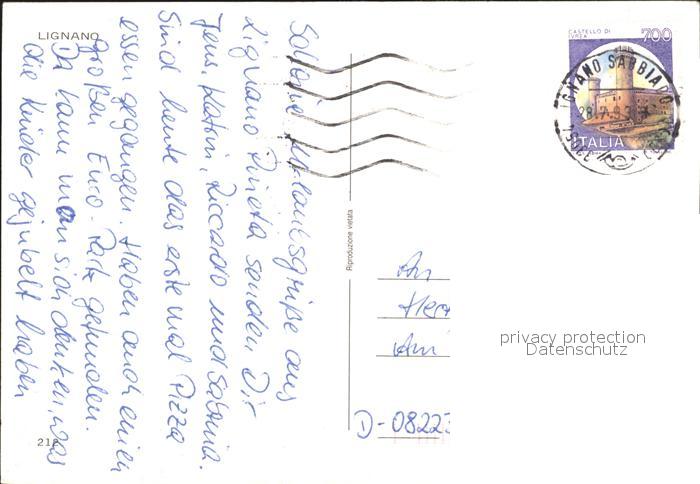 LIGNANO
Schöne Urlaubsgrüße aus
Lignano Pineta senden Dir
Jens, Katrin, Riccardo und Sabrina.
Sind heute das erste mal Pizza
essen gegangen. Haben auch einen
großen Euro-Park gefunden.
Da kann man sich denken, was
die Kinder gejubelt haben
218
Riproduzione vietata
CASTELLO DI
IVREA
700
ITALIA
LIGNANO SABBIADORO
33054
An
Herr
Am
D-08223
privacy protection
Datenschutz